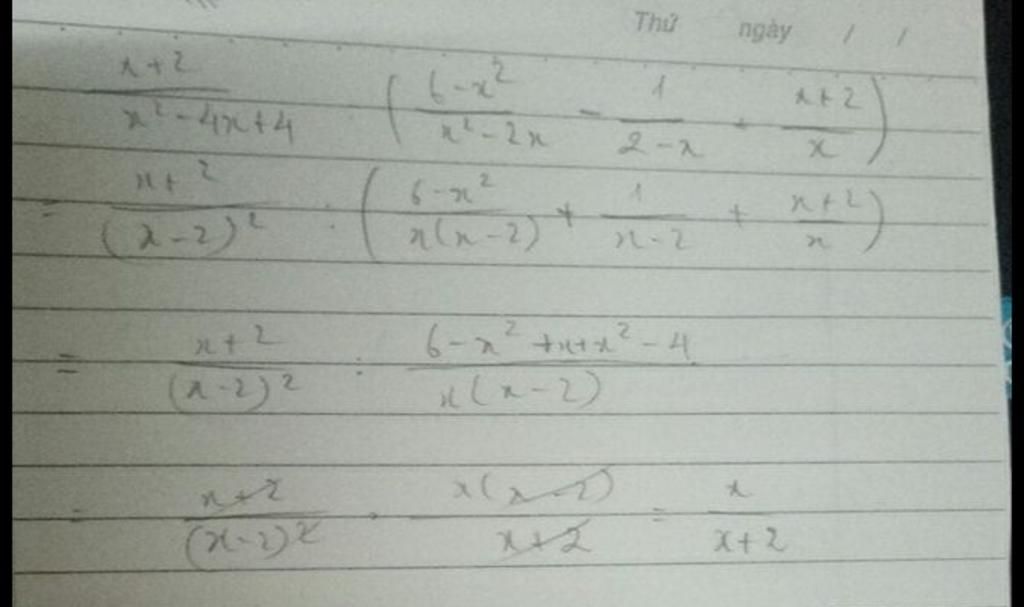 Thứ ngày / /
\frac{x+2}{x^2-4x+4} : \left( \frac{6-x^2}{x^2-2x} - \frac{1}{2-x} + \frac{x+2}{x} \right)
= \frac{x+2}{(x-2)^2} : \left( \frac{6-x^2}{x(x-2)} + \frac{1}{x-2} + \frac{x+2}{x} \right)
= \frac{x+2}{(x-2)^2} : \frac{6-x^2+x+x^2-4}{x(x-2)}
= \frac{x+2}{(x-2)^2} \cdot \frac{x(x-2)}{x+2} = \frac{x}{x+2}